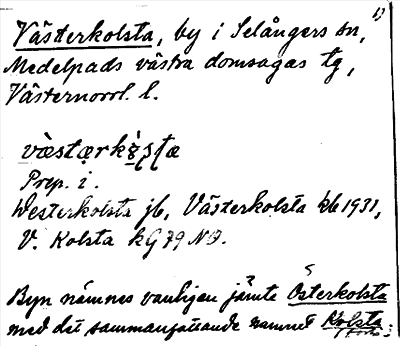 Västerkolsta, by i Selångers sn,
Medelpads västra domsagas tg,
Västernorrl. l.
Prep. i.
Westerkolsta jb, Västerkolsta kb 1931,
V. Kolsta kG 79 NO.
Byn nämnes vanligen jämte Österkolsta
med det sammanfattande namnet Kolsta